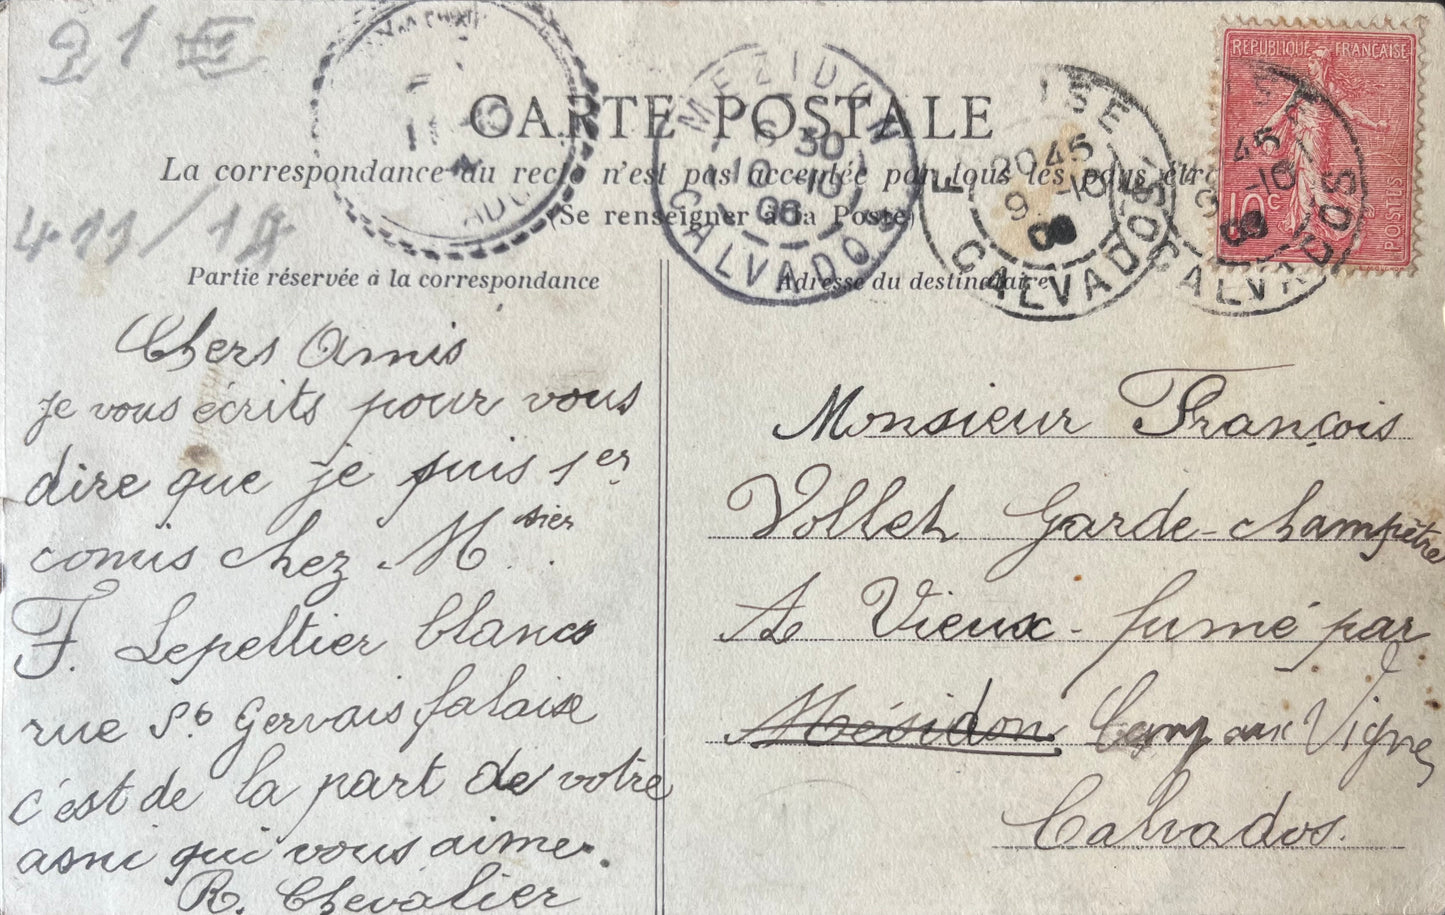 21 E
411/14
CARTE POSTALE
La correspondance au recto n'est pas acceptée par tous les pays étr
(Se renseigner à la Poste)
Partie réservée à la correspondance
Adresse du destinataire
MEZIDON
6 30
10 -10
06
CALVADOS
ISE
2045
9 -10
06
CALVADOS
ISE
45
-10
CALVADOS
REPUBLIQUE FRANÇAISE
10c
POSTES
Chers Amis
je vous écrits pour vous
dire que je suis 1er
comis chez M sier
F. Lepeltier blancs
rue St Gervais falaise
c'est de la part de votre
ami qui vous aime.
R. Chevalier
Monsieur François
Vollet Garde-champêtre
A Vieux-fumé par
Mésidon Camp aux Vigne
Calvados.